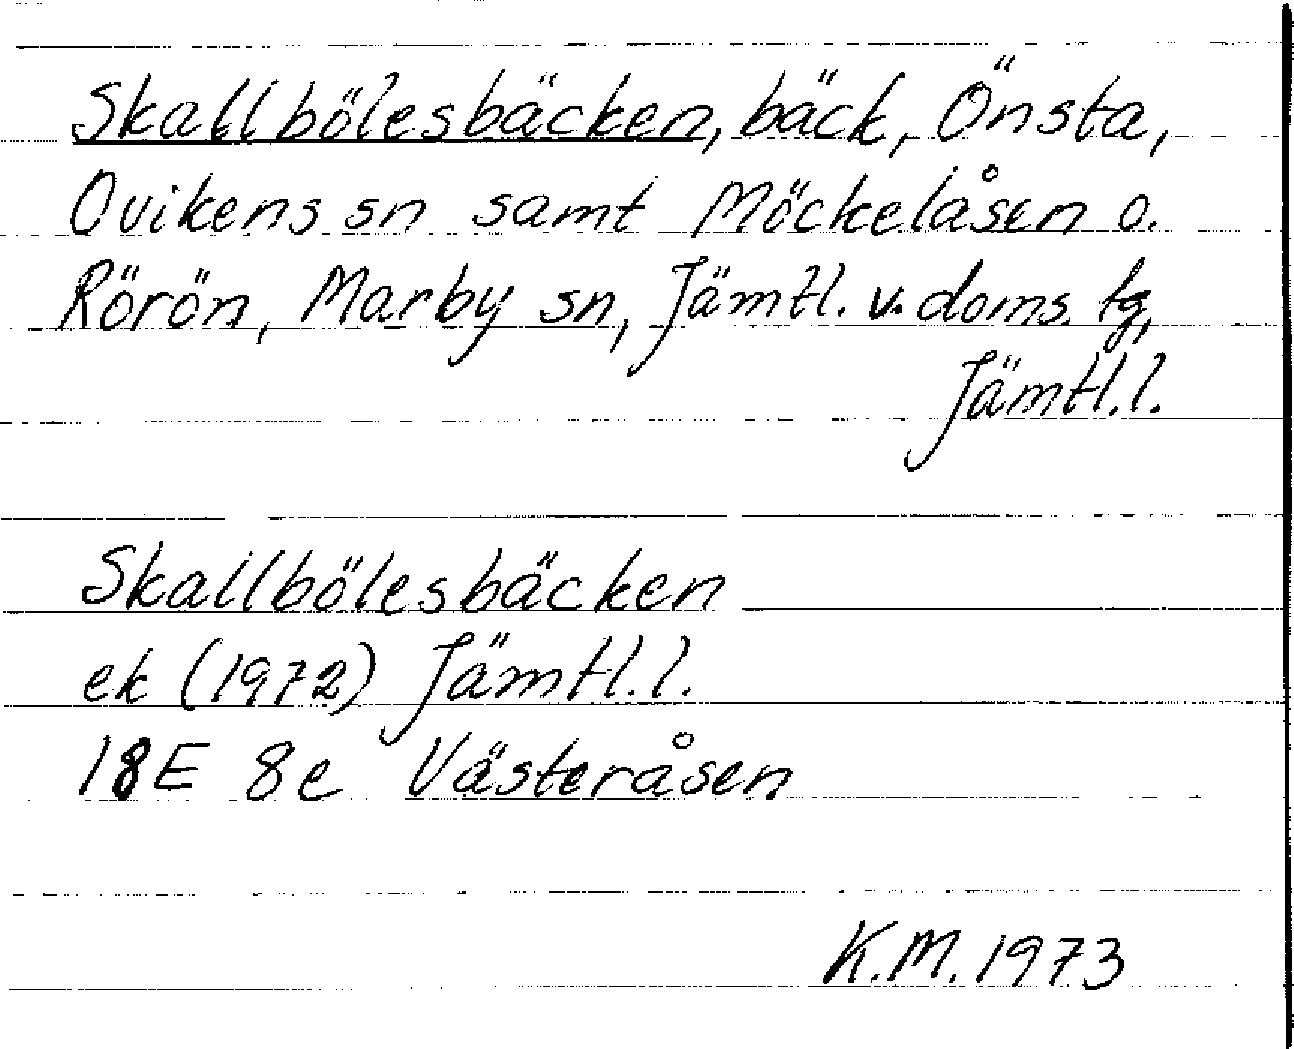 Skallbölesbäcken, bäck, Önsta,
Ovikens sn samt Möckelåsen o.
Rörön, Marby sn, Jämtl. v. doms. tg,
Jämtl.l.
Skallbölesbäcken
ek (1972) Jämtl.l.
18E 8e Västeråsen
K.M. 1973